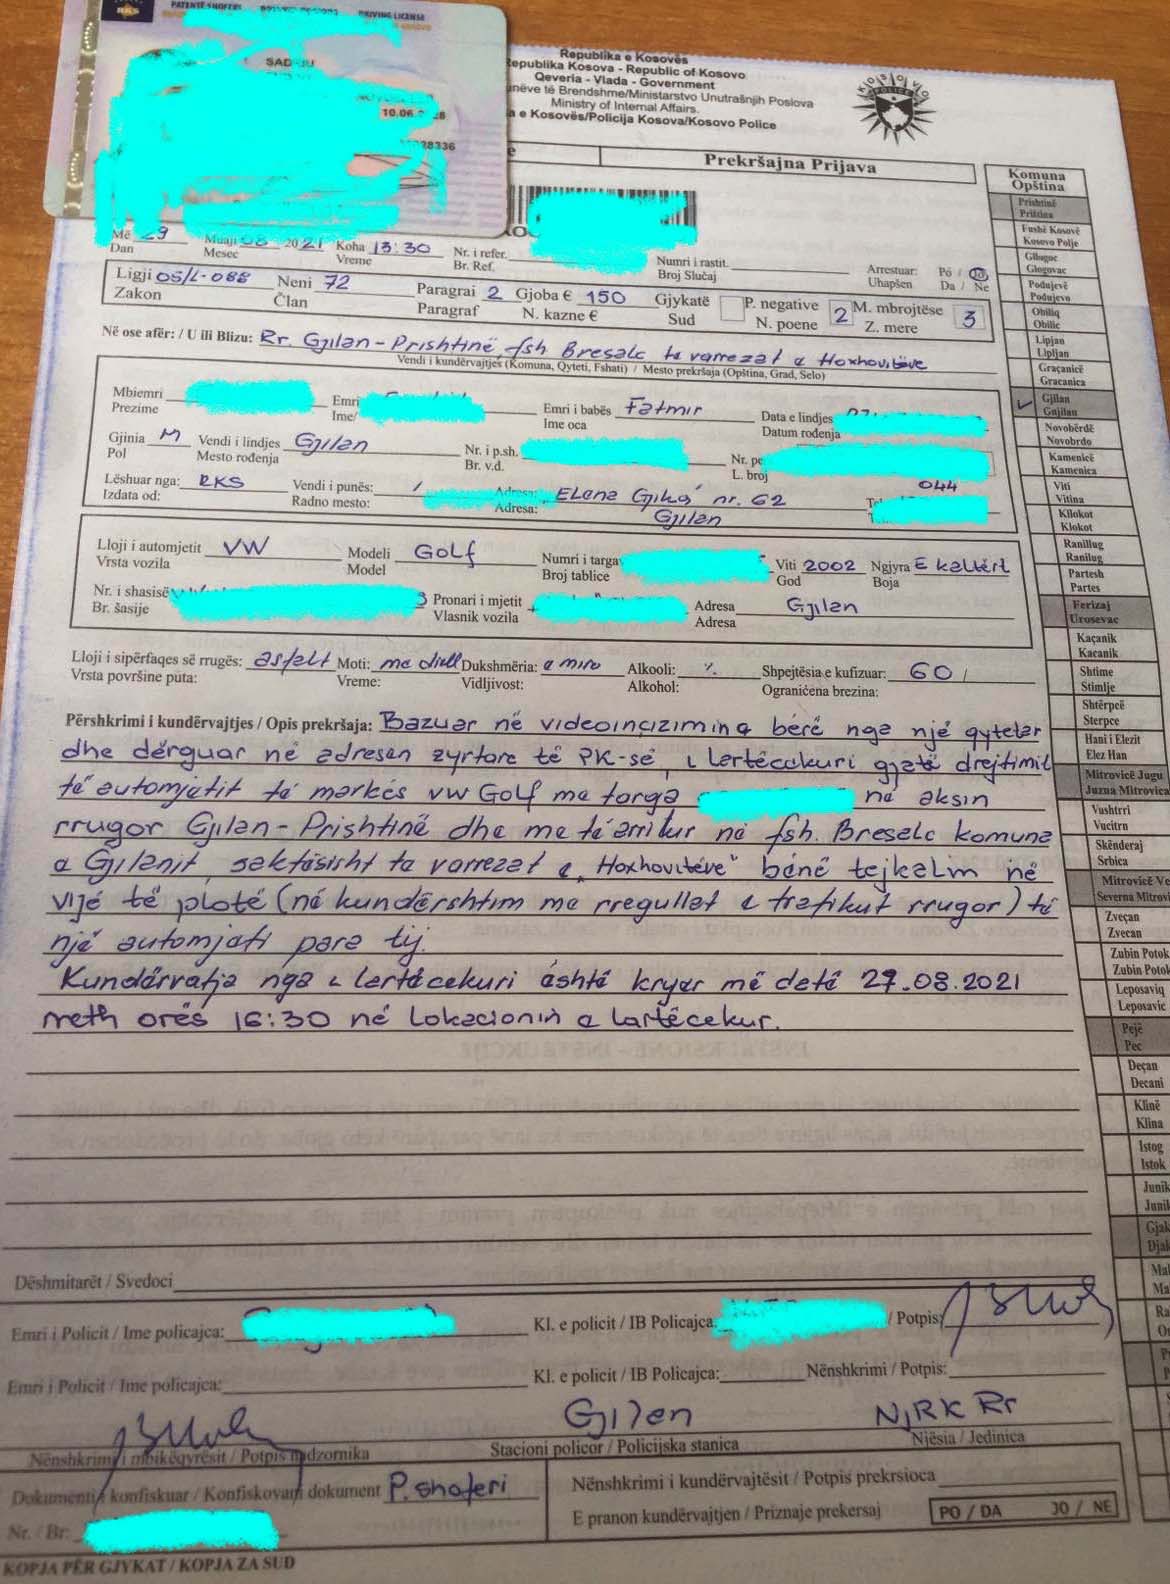 RKS
PATENTË SHOFERI
DRIVING LICENSE
SAD-JU
10.06.
28336
Republika e Kosovës
Republika Kosova - Republic of Kosovo
Qeveria - Vlada - Government
unëve të Brendshme/Ministarstvo Unutrašnjih Poslova
Ministry of Internal Affairs.
a e Kosovës/Policija Kosova/Kosovo Police
KOSOVO
POLICE
e
Prekršajna Prijava
Më 29 Muaji 08 2021 Koha 13:30 Nr. i refer. Numri i rastit. Arrestuar: Po / Jo
Dan Mesec Vreme Br. Ref. Broj Slučaj Uhapšen Da / Ne
Ligji 05/L-088 Neni 72 Paragrai 2 Gjoba € 150 Gjykatë P. negative 2 M. mbrojtëse 3
Zakon Član Paragraf N. kazne € Sud N. poene Z. mere
Në ose afër: / U ili Blizu: Rr. Gjilan-Prishtinë, fsh Bresalc te varrezat e Hoxhovitëve
Vendi i kundërvajtjes (Komuna, Qyteti, Fshati) / Mesto prekršaja (Opština, Grad, Selo)
Mbiemri Emri Emri i babës Fatmir Data e lindjes
Prezime Ime/ Ime oca Datum rođenja
Gjinia M Vendi i lindjes Gjilan Nr. i p.sh. Nr. pe
Pol Mesto rođenja Br. v.d. L. broj
Lëshuar nga: RKS Vendi i punës: / Adresa: Elena Gjika nr. 62 044
Izdata od: Radno mesto: Adresa: Gjilan
Lloji i automjetit VW Modeli Golf Numri i targa Viti 2002 Ngjyra E kaltërt
Vrsta vozila Model Broj tablice God Boja
Nr. i shasisë Pronari i mjetit Adresa Gjilan
Br. šasije Vlasnik vozila Adresa
Lloji i sipërfaqes së rrugës: asfalt Moti: me diell Dukshmëria: e mirë Alkooli: Shpejtësia e kufizuar: 60
Vrsta površine puta: Vreme: Vidljivost: Alkohol: Ograničena brezina:
Përshkrimi i kundërvajtjes / Opis prekršaja: Bazuar në videoinçizimin e bërë nga një qytetar
dhe dërguar në adresen zyrtare të PK-së, i lartëcekuri gjatë drejtimit
të automjetit të markës VW Golf me targa në aksin
rrugor Gjilan-Prishtinë dhe me të arritur në fsh. Bresalc komuna
e Gjilanit, saktësisht te varrezat e "Hoxhovitëve" bënë tejkalm në
vijë të plotë (në kundërshtim me rregullat e trafikut rrugor) të
një automjeti para tij.
Kundërvatja nga i lartëcekuri është kryer më datë 27.08.2021
rreth orës 16:30 në lokacionin e lartëcekur.
Dëshmitarët / Svedoci
Emri i Policit / Ime policajca: Kl. e policit / IB Policajca: / Potpis:
Emri i Policit / Ime policajca: Kl. e policit / IB Policajca: Nënshkrimi / Potpis:
Gjilan NJRK Rr
Nënshkrimi i mbikëqyrësit / Potpis nadzornika Stacioni policor / Policijska stanica Njësia / Jedinica
Dokumenti i konfiskuar / Konfiskovani dokument P.shoferi Nënshkrimi i kundërvajtësit / Potpis prekrsioca
Nr. / Br: E pranon kundërvajtjen / Priznaje prekersaj PO / DA JO / NE
KOPJA PËR GJYKAT / KOPJA ZA SUD
Komuna
Opština
Prishtinë
Priština
Fushë Kosovë
Kosovo Polje
Gllogoc
Glogovac
Podujevë
Podujevo
Obiliq
Obilic
Lipjan
Lipljan
Graçanicë
Gracanica
Gjilan
Gnjilan
Novobërdë
Novobrdo
Kamenicë
Kamenica
Viti
Vitina
Kllokot
Klokot
Ranillug
Ranilug
Partesh
Partes
Ferizaj
Urosevac
Kaçanik
Kacanik
Shtime
Stimlje
Shtërpcë
Sterpce
Hani i Elezit
Elez Han
Mitrovicë Jugu
Juzna Mitrovica
Vushtrri
Vucitrn
Skënderaj
Srbica
Mitrovicë Ve
Severna Mitrovi
Zveçan
Zvecan
Zubin Potok
Zubin Potok
Leposaviq
Leposavic
Pejë
Pec
Deçan
Decani
Klinë
Klina
Istog
Istok
Junik
Juni
Gjak
Djak